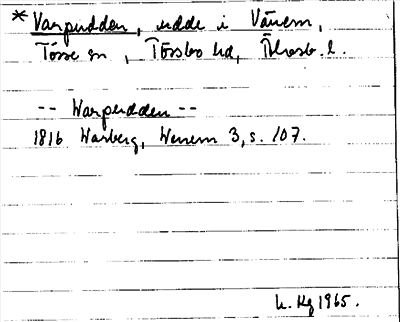 * Varpudden, udde i Vänern,
Tösse sn, Tössbo hd, Älvsb. l.
-- Warpudden --
1816 Warberg, Wenern 3, s. 107.
h. Hg 1965.